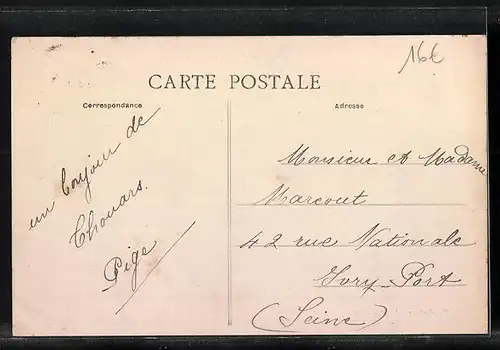 16€
CARTE POSTALE
Correspondance
Adresse
un bonjour de
Thouars.
Pige
Monsieur et Madame
Marcout
42 rue Nationale
Ivry-Port
(Seine)